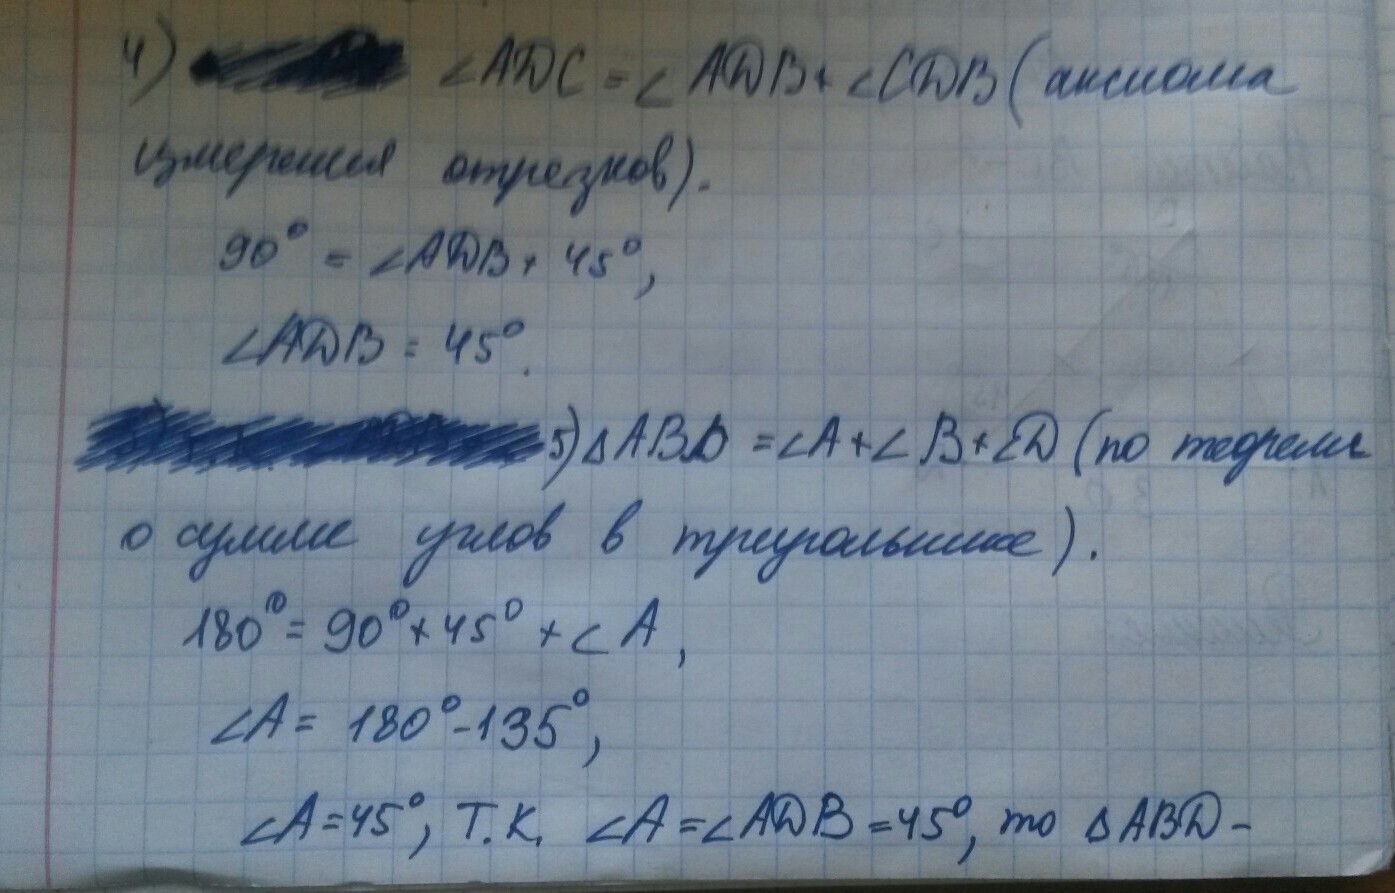 4) ∠ADC = ∠ADB + ∠CDB (аксиома
измерения отрезков).
90° = ∠ADB + 45°,
∠ADB = 45°.
5) △ABD = ∠A + ∠B + ∠D (по теореме
о сумме углов в треугольнике).
180° = 90° + 45° + ∠A,
∠A = 180° - 135°,
∠A = 45°, Т.К. ∠A = ∠ADB = 45°, то △ABD -